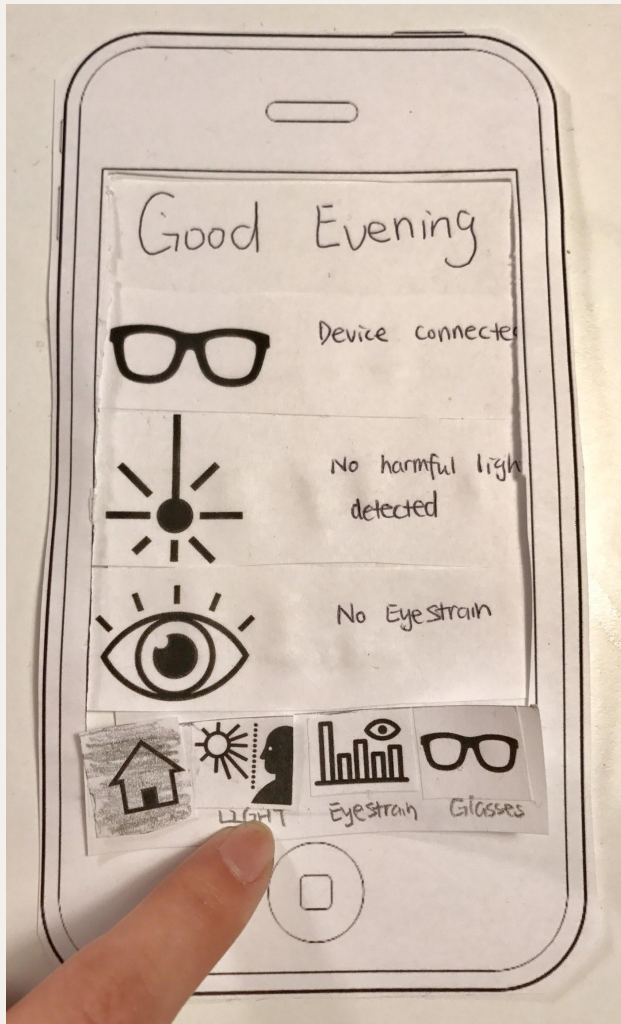 Good Evening
Device connected
No harmful light
detected
No Eyestrain
LIGHT Eyestrain Glasses